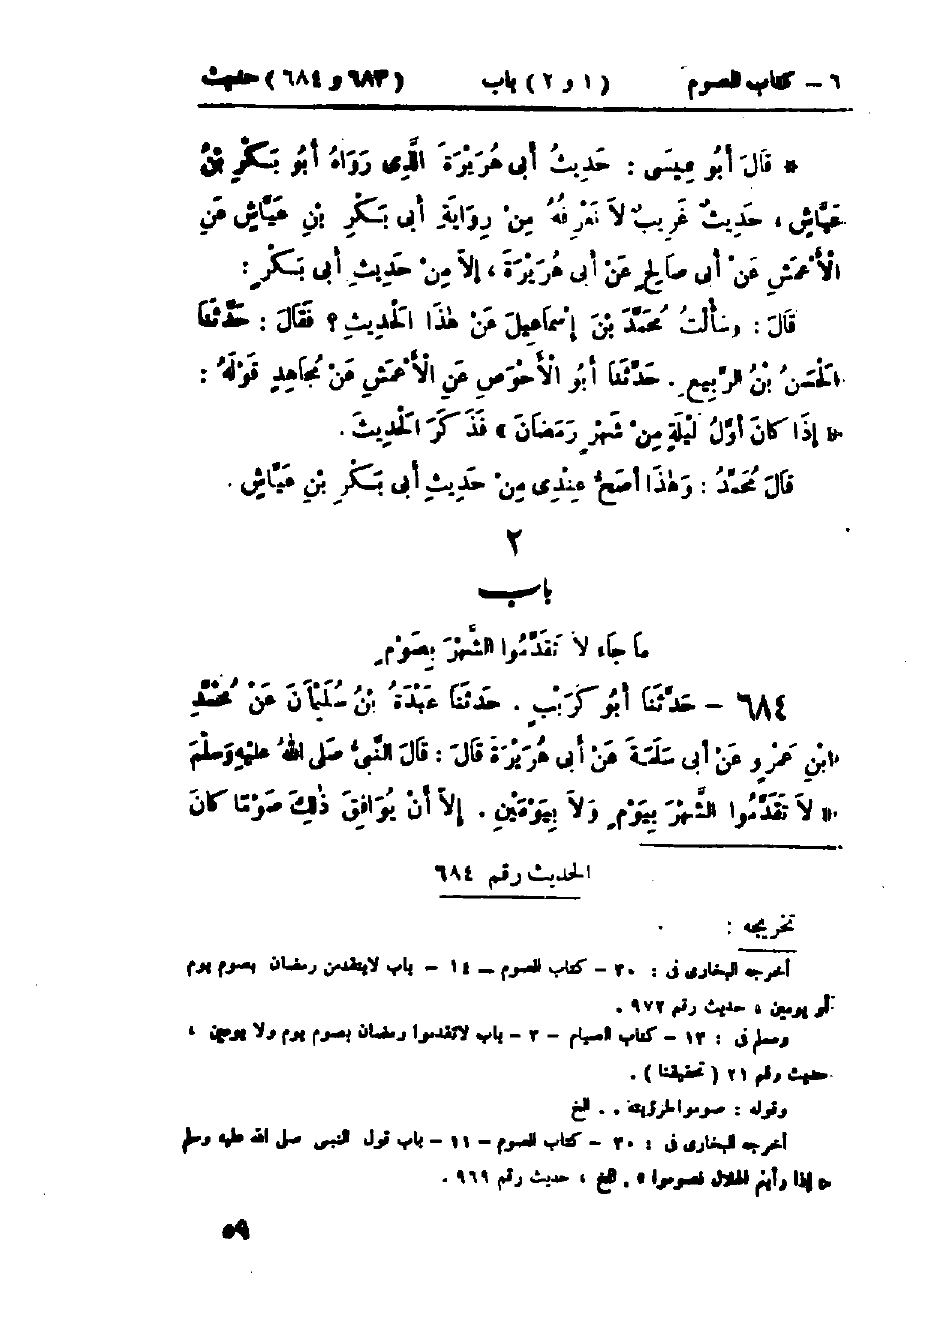 ٦ – كتاب الصوم (١ و ٢) باب (٦٨٣ و ٦٨٤) حديث
* قَالَ أَبُو عِيسَى : حَدِيثُ أَبِى هُرَيْرَةَ الَّذِى رَوَاهُ أَبُو بَكْرِ بْنُ
عَيَّاشٍ ، حَدِيثٌ غَرِيبٌ لاَ نَعْرِفُهُ مِنْ رِوَايَةِ أَبِى بَكْرِ بْنِ عَيَّاشٍ عَنِ
الْأَعْمَشِ عَنْ أَبِى صَالِحٍ عَنْ أَبِى هُرَيْرَةَ ، إِلاَّ مِنْ حَدِيثِ أَبِى بَكْرٍ :
قَالَ : وَسَأَلْتُ مُحَمَّدَ بْنَ إِسْمَاعِيلَ عَنْ هٰذَا الْحَدِيثِ ؟ فَقَالَ : حَدَّثَنَا
الْحَسَنُ بْنُ الرَّبِيعِ . حَدَّثَنَا أَبُو الْأَحْوَصِ عَنِ الْأَعْمَشِ عَنْ مُجَاهِدٍ قَوْلَهُ :
« إِذَا كَانَ أَوَّلُ لَيْلَةٍ مِنْ شَهْرِ رَمَضَانَ » فَذَكَرَ الْحَدِيثَ .
قَالَ مُحَمَّدٌ : وَهٰذَا أَصَحُّ عِنْدِى مِنْ حَدِيثِ أَبِى بَكْرِ بْنِ عَيَّاشٍ .
٢
باب
مَا جَاء لاَ تَقَدَّمُوا الشَّهْرَ بِصَوْمٍ
٦٨٤ – حَدَّثَنَا أَبُو كُرَيْبٍ . حَدَّثَنَا عَبْدَةُ بْنُ سُلَيْمَانَ عَنْ مُحَمَّدِ
ابْنِ عَمْرٍو عَنْ أَبِى سَلَمَةَ عَنْ أَبِى هُرَيْرَةَ قَالَ : قَالَ النَّبِىُّ صَلى اللهُ عليْهِ وَسَلَّمَ
« لاَ تَقَدَّمُوا الشَّهْرَ بِيَوْمٍ وَلاَ بِيَوْمَيْنِ . إِلاَّ أَنْ يُوَافِقَ ذٰلِكَ صَوْمًا كَانَ
الحديث رقم ٦٨٤
تخريجه :
أخرجه البخارى فى : ٣٠ – كتاب الصوم – ١٤ – باب لايتقدمن رمضان بصوم يوم
أو يومين ، حديث رقم ٩٧٢ .
ومسلم فى : ١٣ – كتاب الصيام – ٣ – باب لاتقدموا رمضان بصوم يوم ولا يومين ،
حديث رقم ٢١ ( تحقيقنا ) .
وقوله : صوموا لرؤيته . . الخ
أخرجه البخارى فى : ٣٠ – كتاب الصوم – ١١ – باب قول النبى صلى الله عليه وسلم
« إذا رأيتم الهلال فصوموا » . الخ ، حديث رقم ٩٦٩ .
٥٩